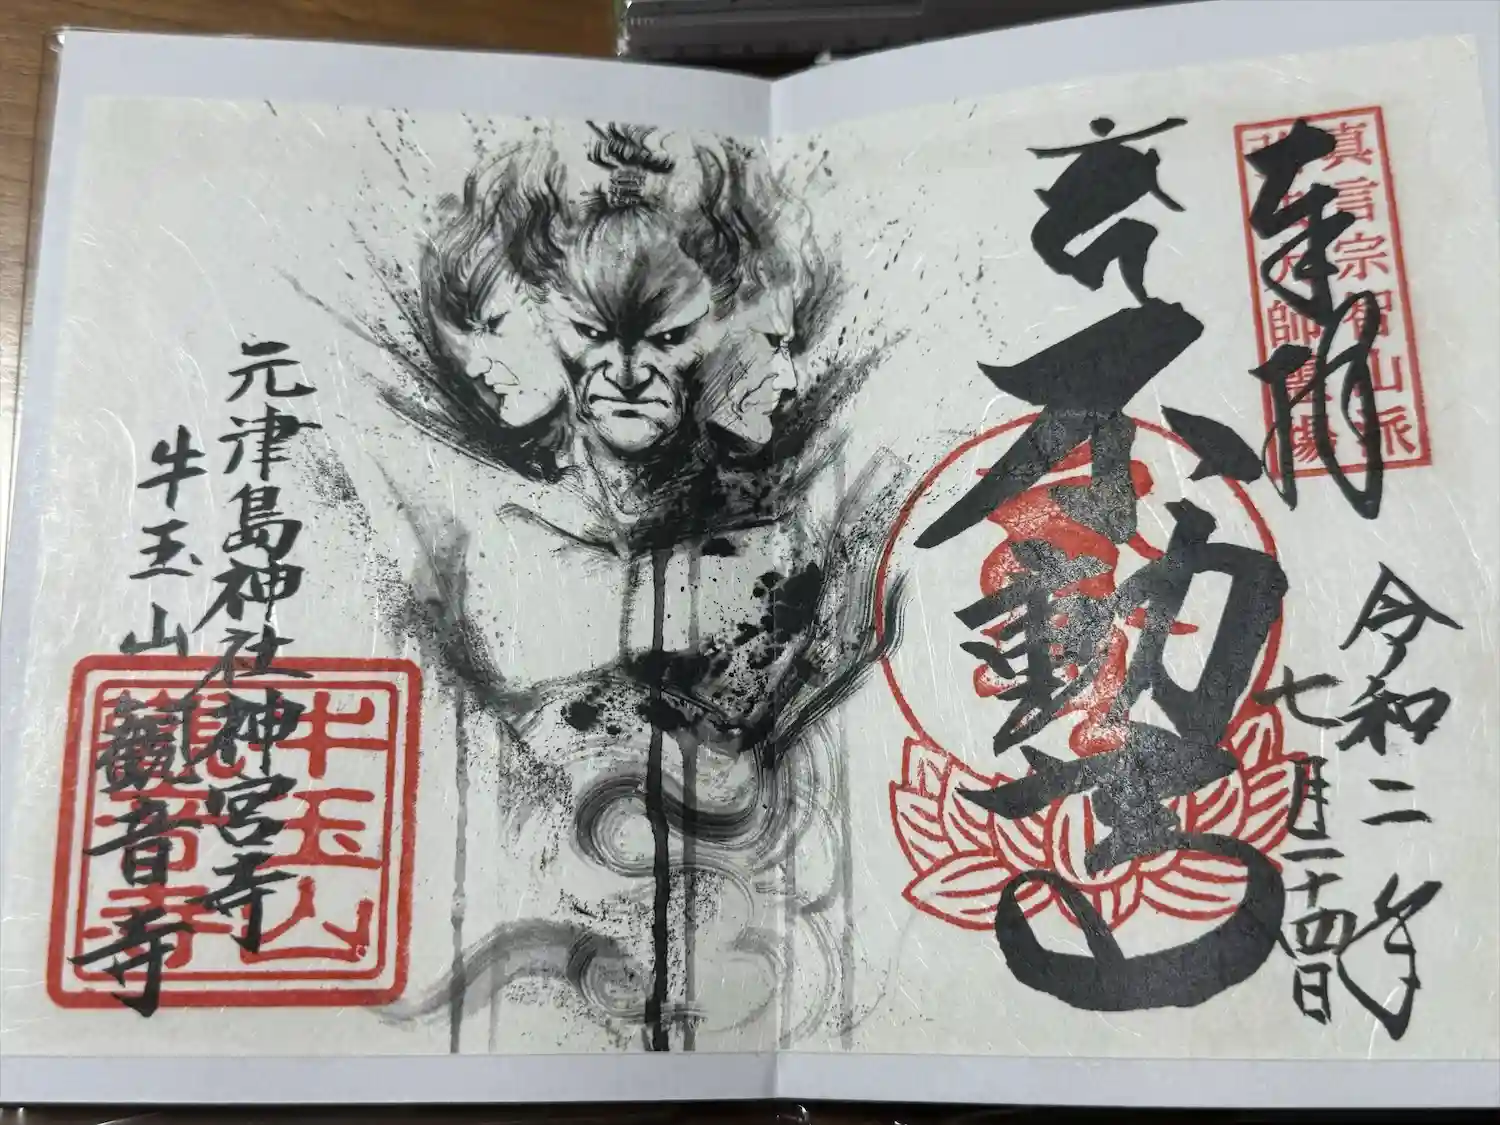 真言宗智山派
奉拝
令和二年
七月二十四日
不動
元津島神社神宮寺
牛玉山
觀音寺
牛玉山
觀音寺